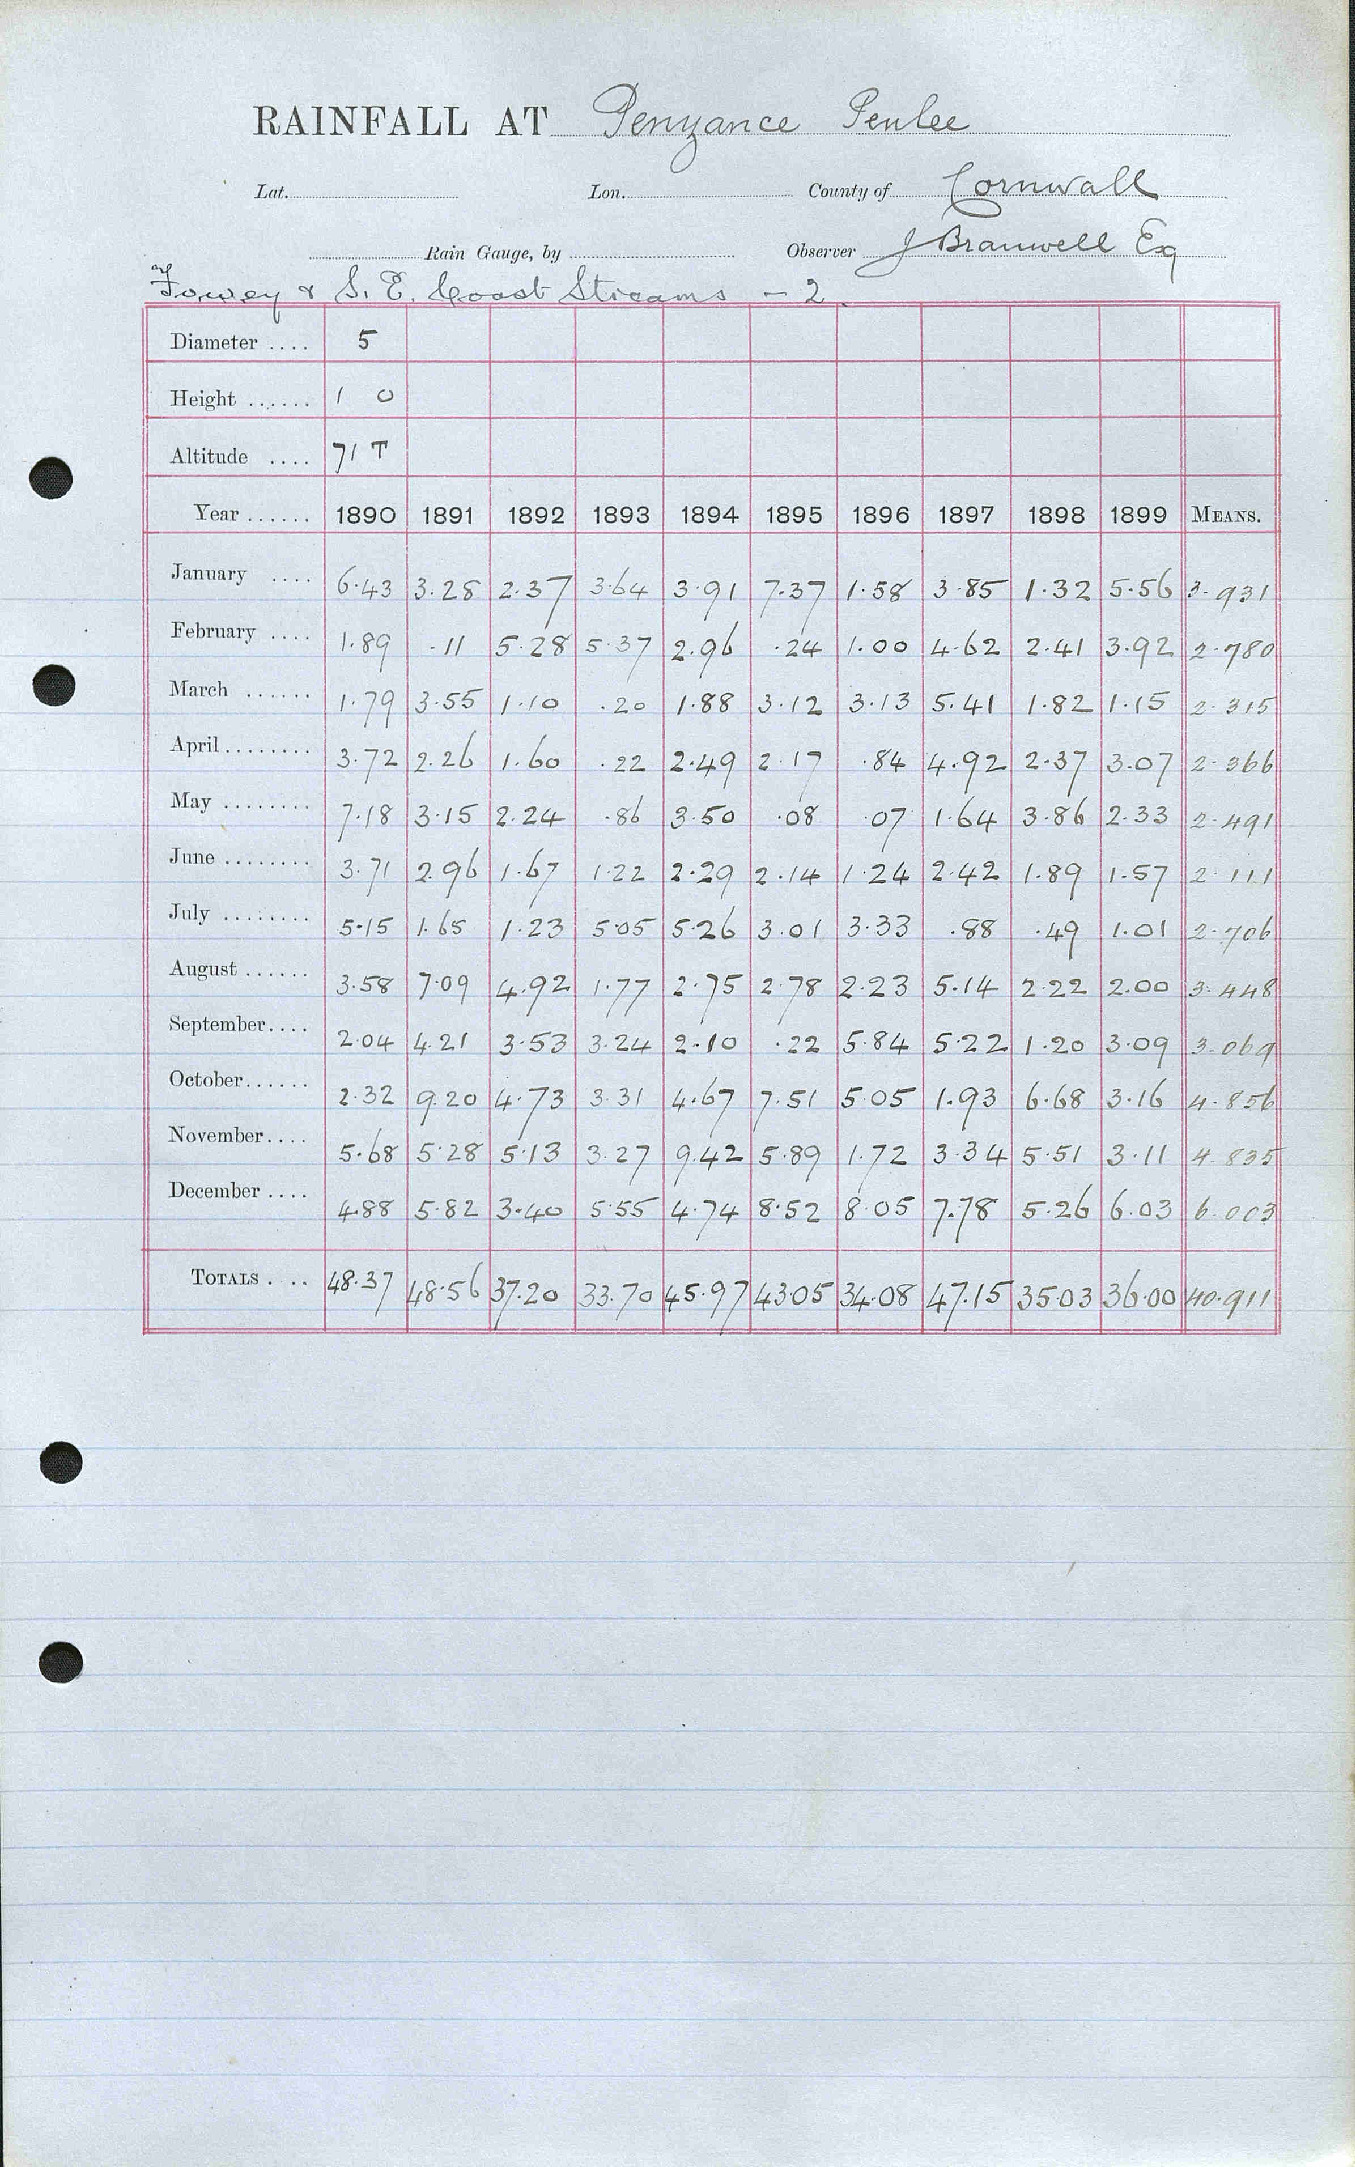 RAINFALL AT Penzance Penlee
Lat. Lon. County of Cornwall
Rain Gauge, by Observer J Branwell Eq
Fowey & S. E. Coast Streams - 2.
Diameter .... 5
Height ...... 1 0
Altitude .... 71 T
Year ...... 1890 1891 1892 1893 1894 1895 1896 1897 1898 1899 MEANS.
January .... 6.43 3.28 2.37 3.64 3.91 7.37 1.58 3.85 1.32 5.56 3.931
February .... 1.89 .11 5.28 5.37 2.96 .24 1.00 4.62 2.41 3.92 2.780
March ...... 1.79 3.55 1.10 .20 1.88 3.12 3.13 5.41 1.82 1.15 2.315
April........ 3.72 2.26 1.60 .22 2.49 2.17 .84 4.92 2.37 3.07 2.366
May ........ 7.18 3.15 2.24 .86 3.50 .08 .07 1.64 3.86 2.33 2.491
June ........ 3.71 2.96 1.67 1.22 2.29 2.14 1.24 2.42 1.89 1.57 2.111
July ........ 5.15 1.65 1.23 5.05 5.26 3.01 3.33 .88 .49 1.01 2.706
August ...... 3.58 7.09 4.92 1.77 2.75 2.78 2.23 5.14 2.22 2.00 3.448
September.... 2.04 4.21 3.53 3.24 2.10 .22 5.84 5.22 1.20 3.09 3.069
October...... 2.32 9.20 4.73 3.31 4.67 7.51 5.05 1.93 6.68 3.16 4.856
November.... 5.68 5.28 5.13 3.27 9.42 5.89 1.72 3.34 5.51 3.11 4.835
December .... 4.88 5.82 3.40 5.55 4.74 8.52 8.05 7.78 5.26 6.03 6.003
TOTALS . .. 48.37 48.56 37.20 33.70 45.97 43.05 34.08 47.15 35.03 36.00 40.911